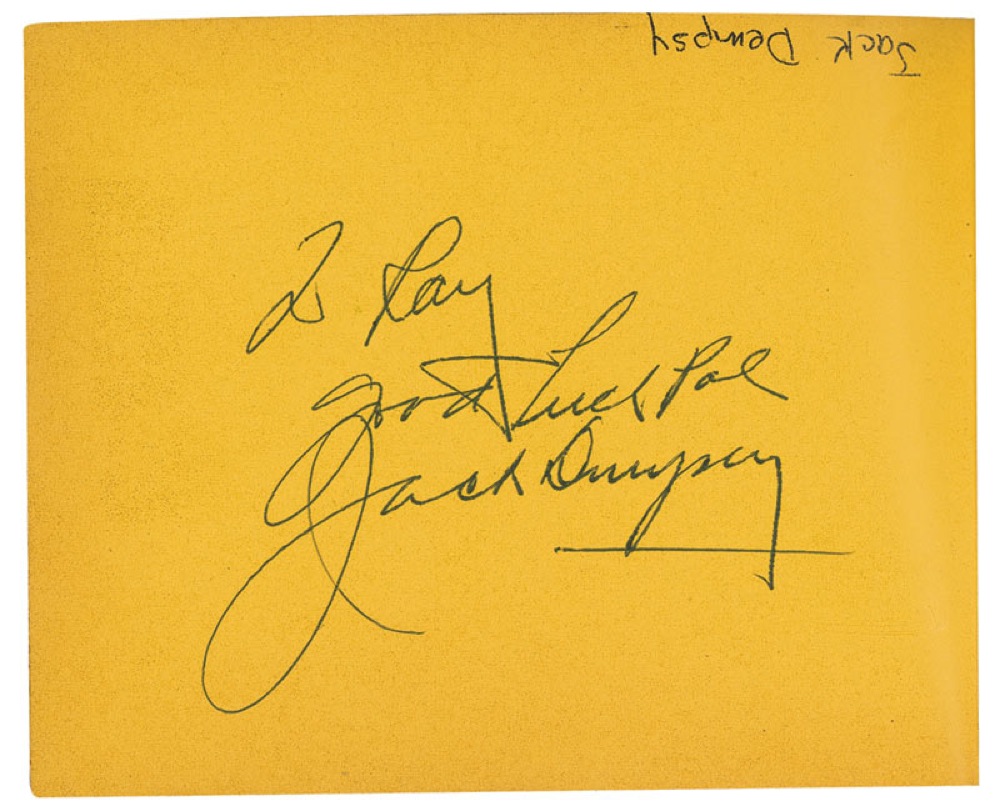 Jack Dempsy
To Ray
Good Luck Pal
Jack Dempsey